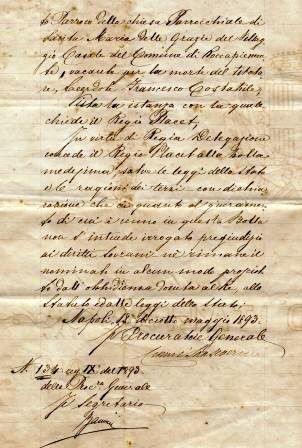 to Parroco della chiesa Parrocchiale di
Santa Maria delle Grazie del Villag
gio Casale del Comune di Roccapiemon
te, vacante per la morte del titola
re, Sacerdote Francesco Costabile,
Vista la istanza con la quale
chiede il Regio Placet,
In virtù di Regia Delegazione
concede il Regio Placet alla bolla
medesima, salve le leggi dello Stato
e le ragioni dei terzi con dichia
razione che in quanto al giuramen
to di cui è cenno in questa Bolla
non s'intende arrecato pregiudizio
ai diritti sovrani nè rimane il
nominato in alcun modo prosciol
to dall'obbedienza dovuta al Re, allo
Statuto ed alle leggi dello Stato.
Napoli, maggio 1893.
Il Procuratore Generale
N. 134 reg. IX del 1893
della Proc. Generale
Il Segretario